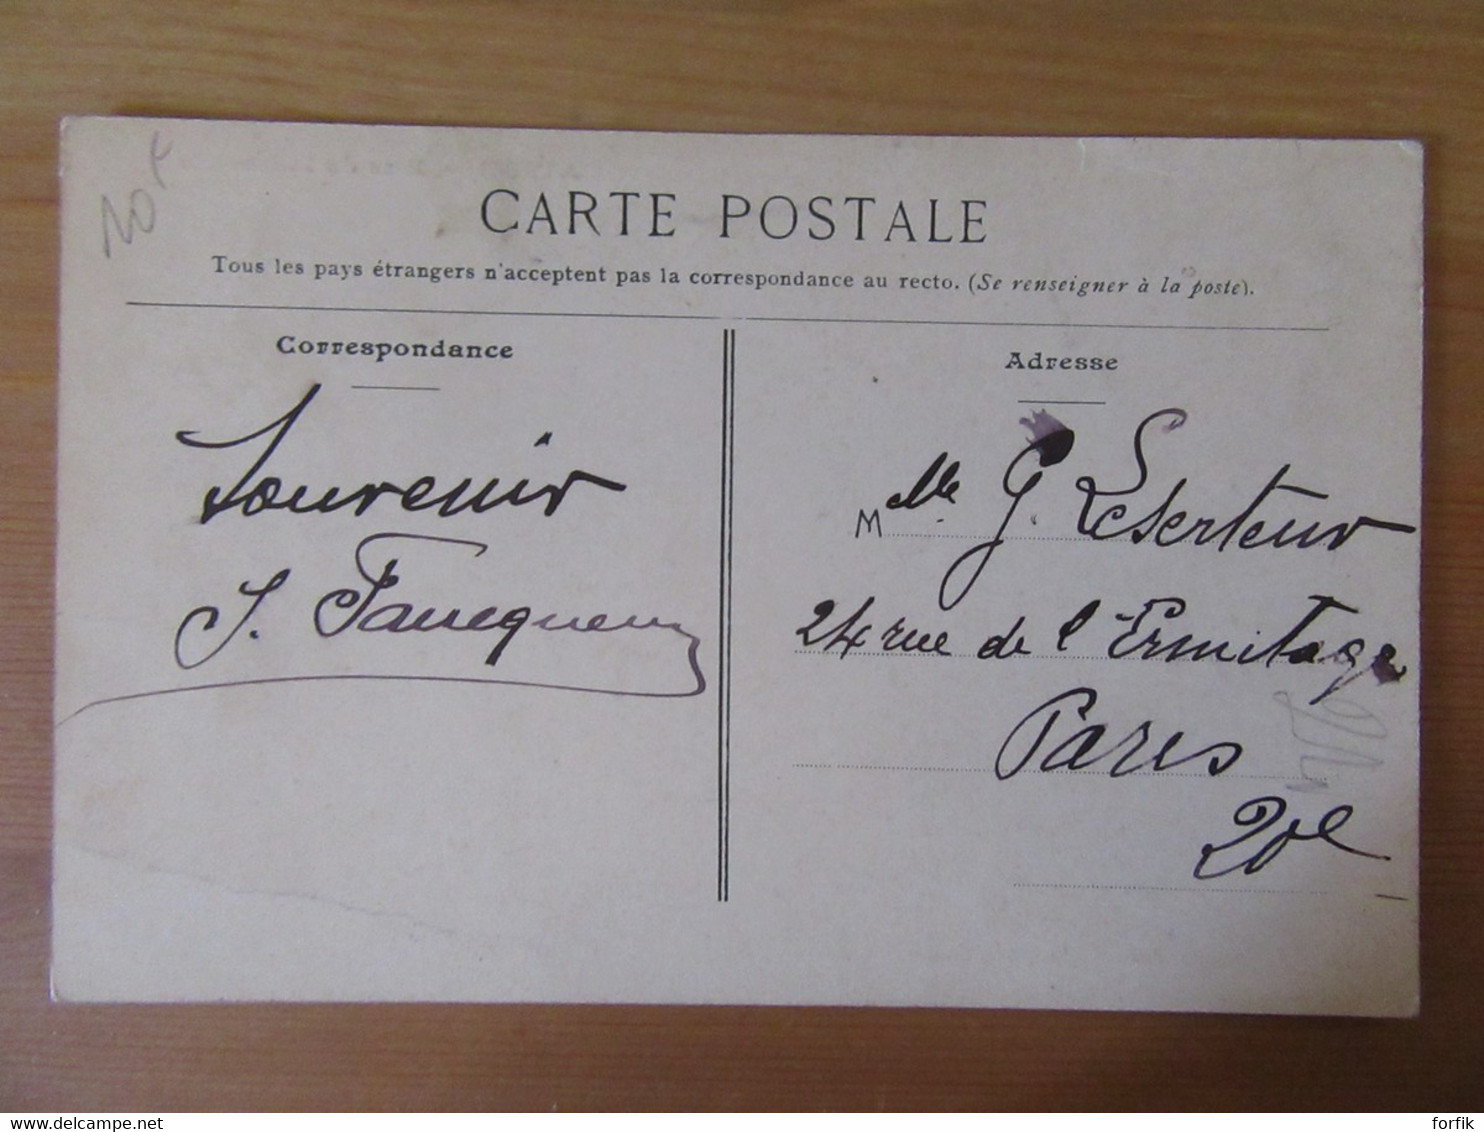 10 f
CARTE POSTALE
Tous les pays étrangers n'acceptent pas la correspondance au recto. (Se renseigner à la poste).
Correspondance
Souvenir
J. Faucquenoy
Adresse
M lle G. Leserteur
24 rue de l'Ermitage
Paris
20e
delcampe.net
forfik